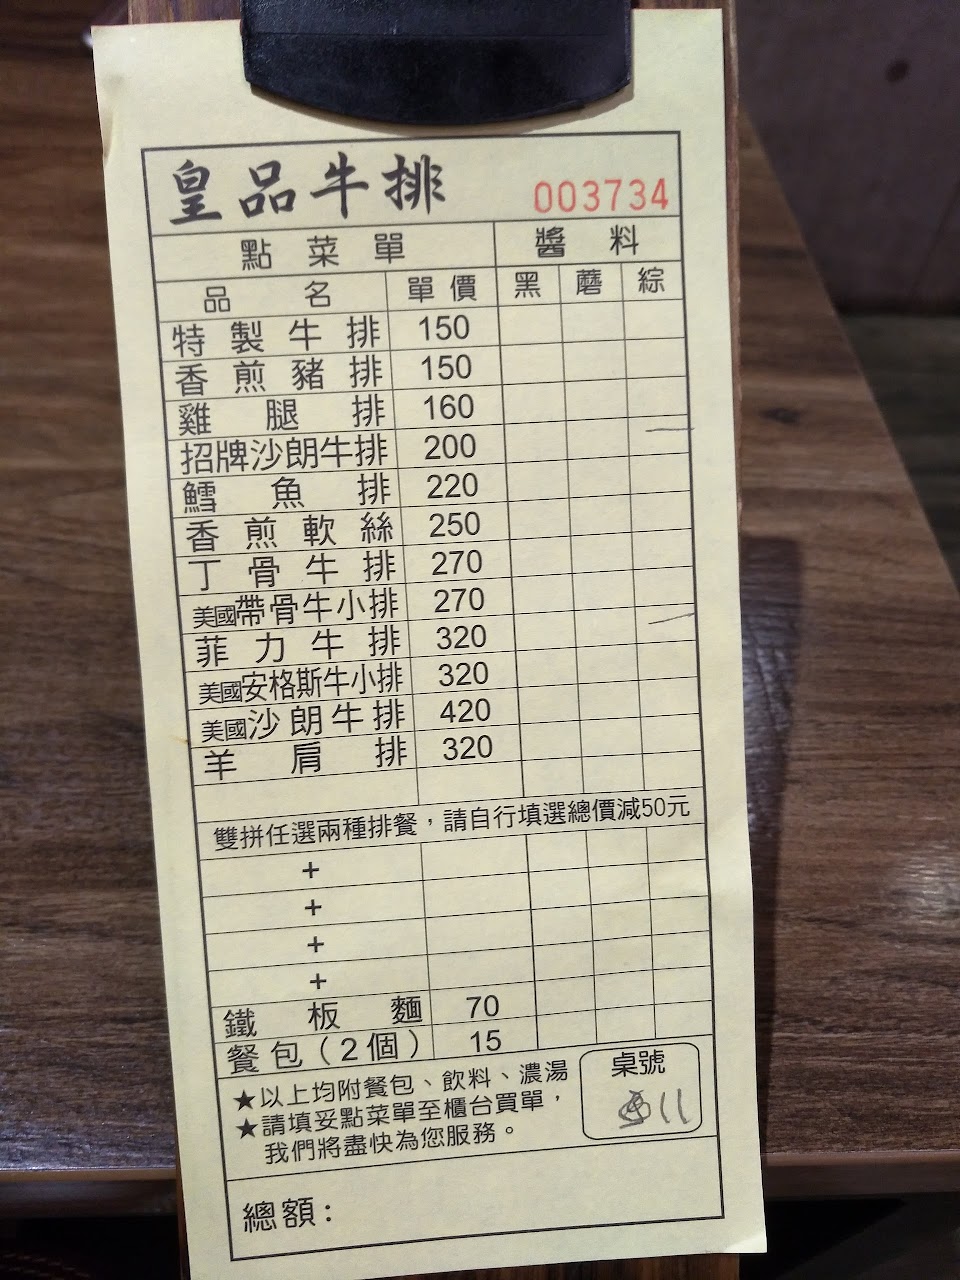 皇品牛排 003734
點菜單 醬料
品名 單價 黑 蘑 綜
特製牛排 150
香煎豬排 150
雞腿排 160
招牌沙朗牛排 200
鱈魚排 220
香煎軟絲 250
丁骨牛排 270
美國帶骨牛小排 270
菲力牛排 320
美國安格斯牛小排 320
美國沙朗牛排 420
羊肩排 320
雙拼任選兩種排餐，請自行填選總價減50元
+
+
+
+
鐵板麵 70
餐包(2個) 15
★以上均附餐包、飲料、濃湯
★請填妥點菜單至櫃台買單，
我們將盡快為您服務。
桌號
11
總額: